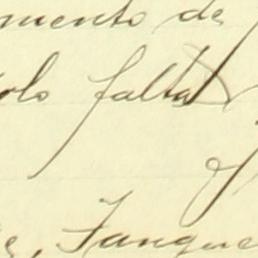 mento de
olo falta
e, Tanque